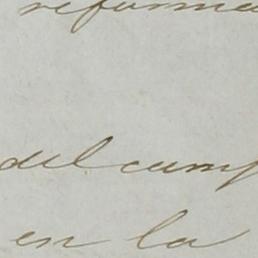 reforma
del cump
en la